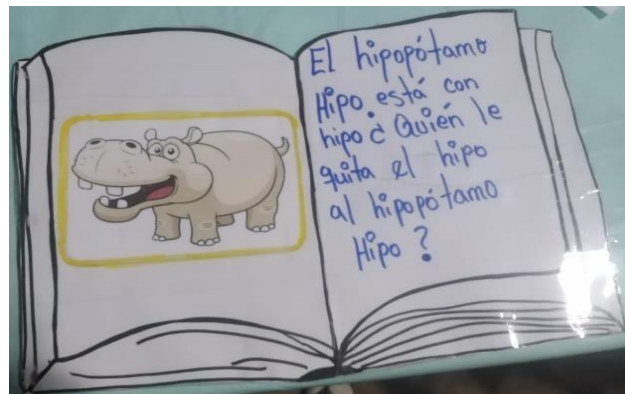 El hipopótamo
Hipo está con
hipo ¿ Quién le
quita el hipo
al hipopótamo
Hipo ?